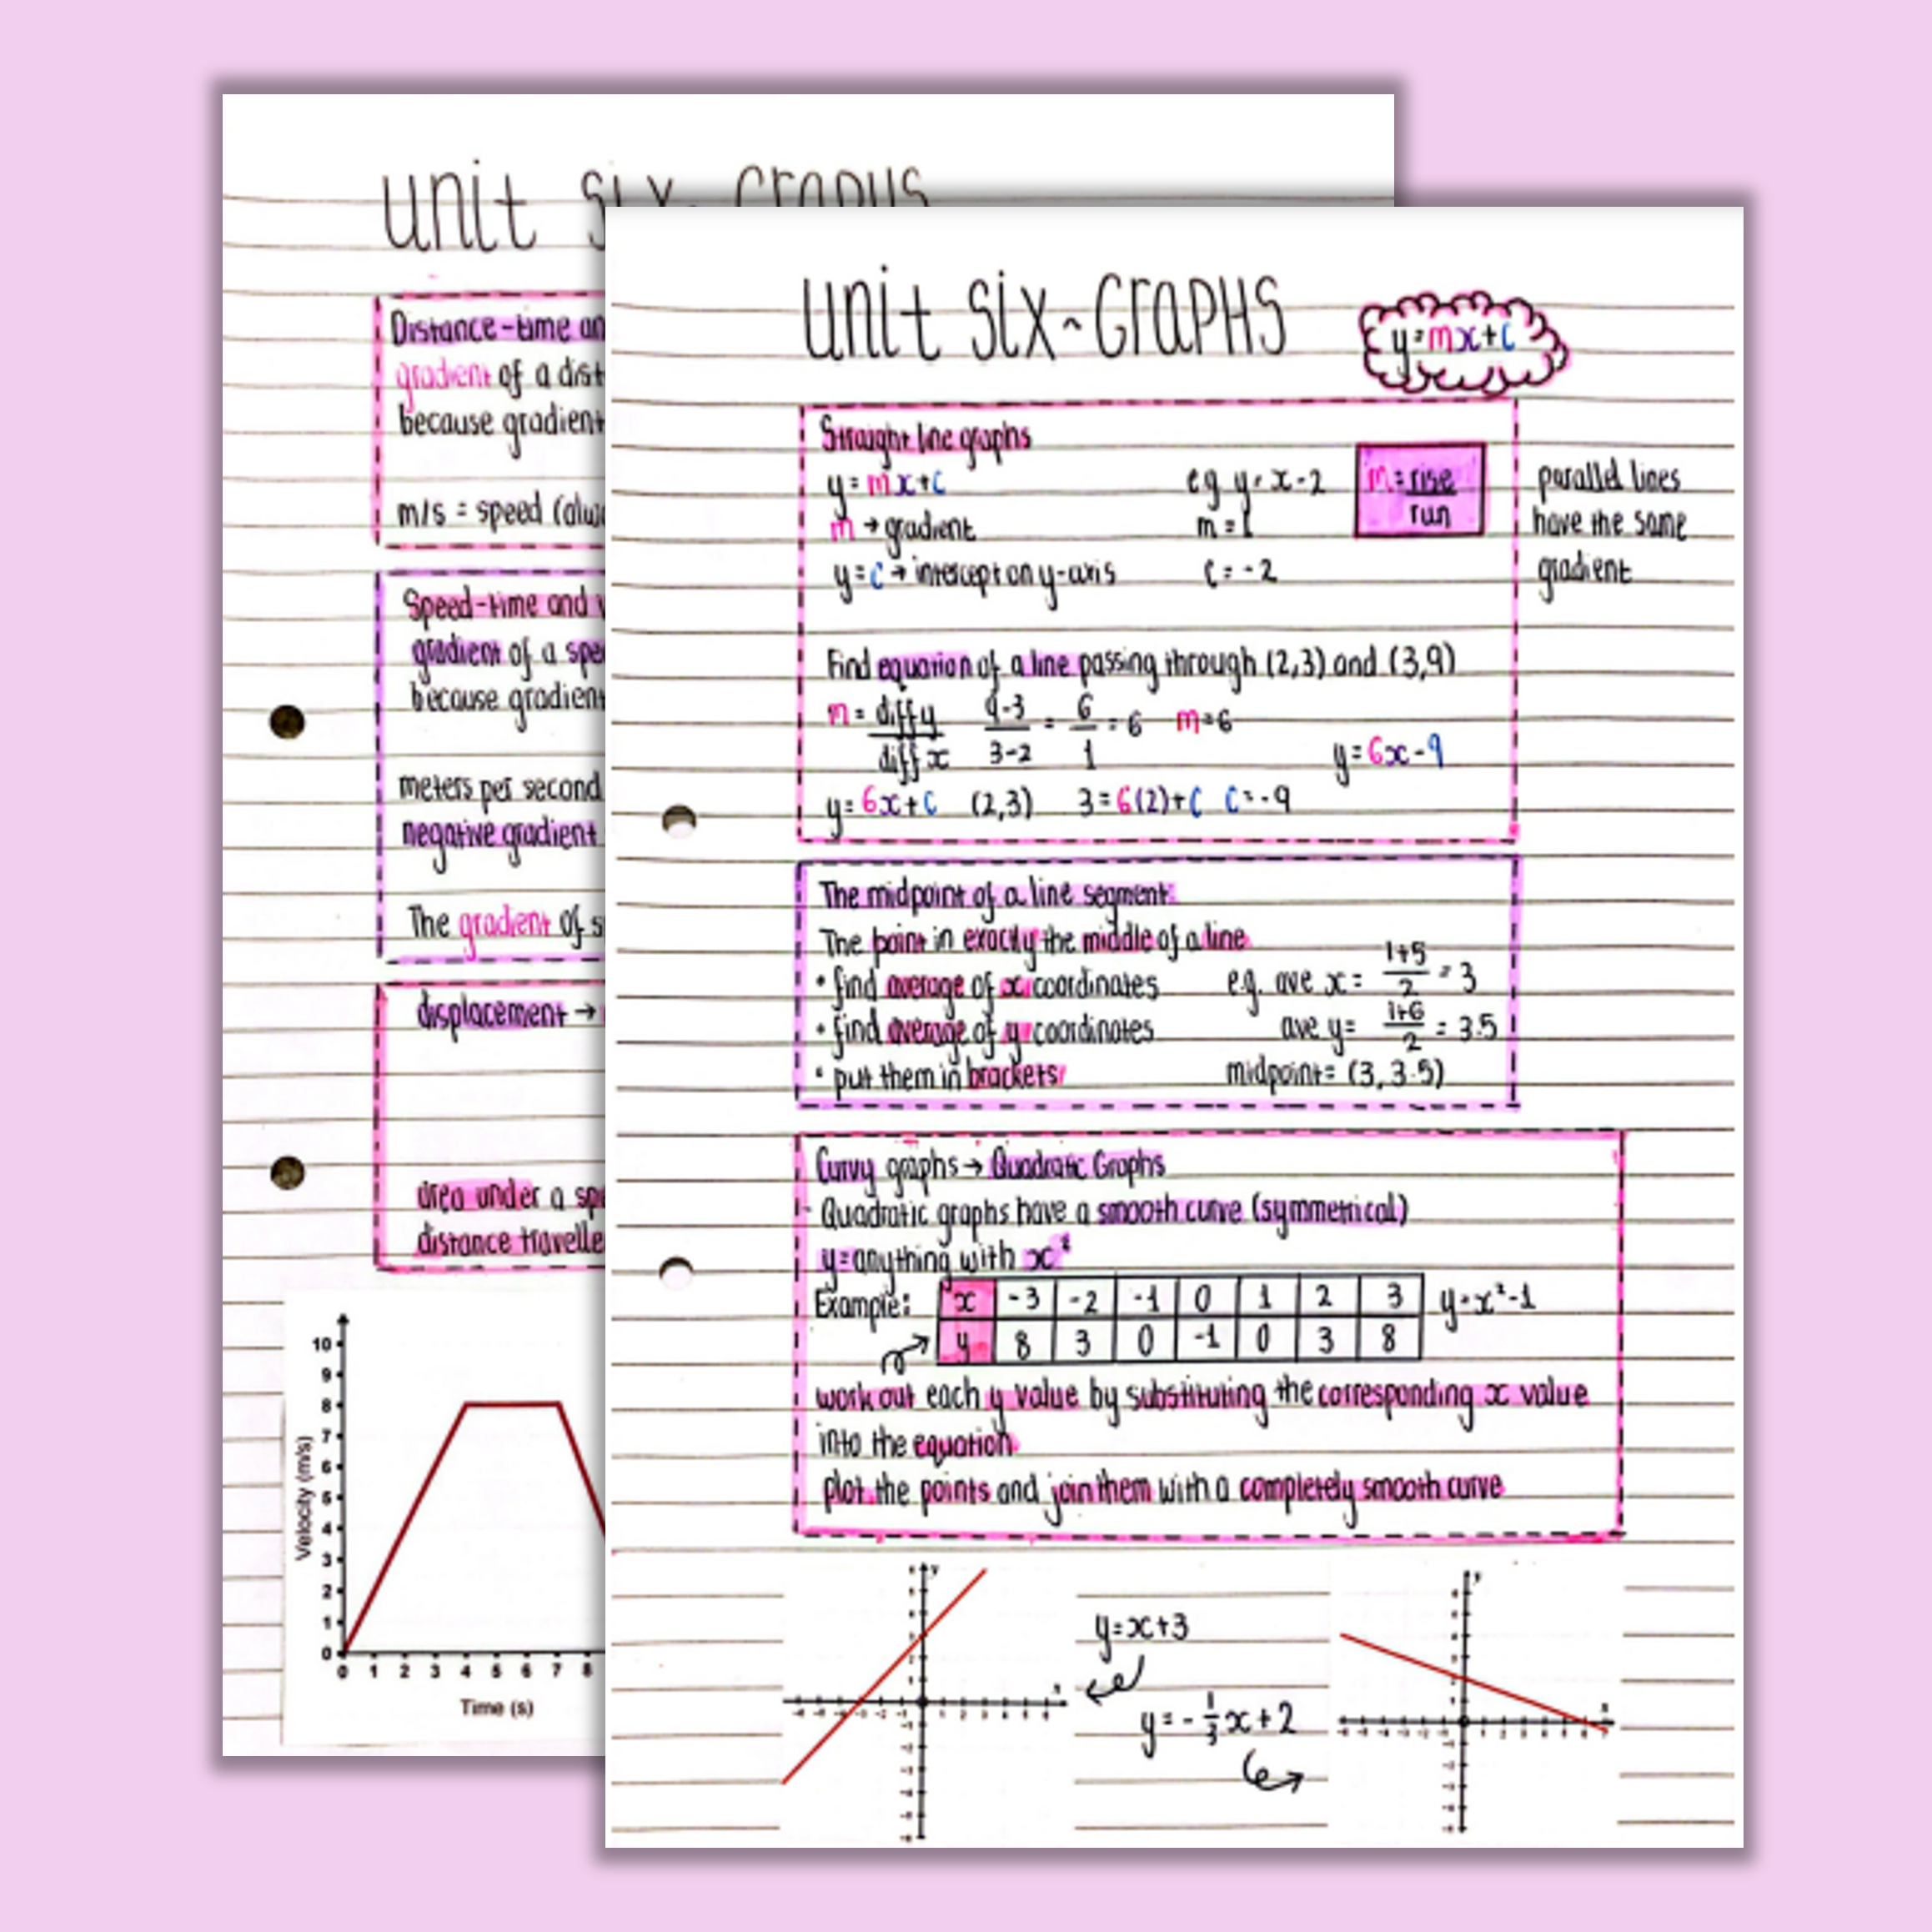 unit six~GraPHS
Distance-time an
gradient of a dist
because gradient
m/s = speed (alwa
Speed-time and v
gradient of a spe
because gradient
meters per second
negative gradient
The gradient of s
displacement →
area under a spe
distance travelle
10
9
8
7
6
5
4
3
2
1
0
Velocity (m/s)
0 1 2 3 4 5 6 7 8
Time (s)
unit six~GraPHS
y=mx+c
Straight line graphs
y=mx+c e.g y=x-2 m=rise/run
m → gradient m=1
y=c → intercept on y-axis c=-2
parallel lines
have the same
gradient
Find equation of a line passing through (2,3) and (3,9)
m= diff y/diff x 9-3/3-2 = 6/1 = 6 m=6
y=6x-9
y=6x+c (2,3) 3=6(2)+c c=-9
The midpoint of a line segment:
The point in exactly the middle of a line
• find average of x coordinates e.g. ave x= 1+5/2 = 3
• find average of y coordinates ave y= 1+6/2 = 3.5
• put them in brackets midpoint= (3,3.5)
Curvy graphs → Quadratic Graphs
- Quadratic graphs have a smooth curve (symmetrical)
y=anything with x²
Example: x -3 -2 -1 0 1 2 3 y=x²-1
y 8 3 0 -1 0 3 8
work out each y value by substituting the corresponding x value
into the equation
plot the points and join them with a completely smooth curve
y=x+3
y=-1/3x+2